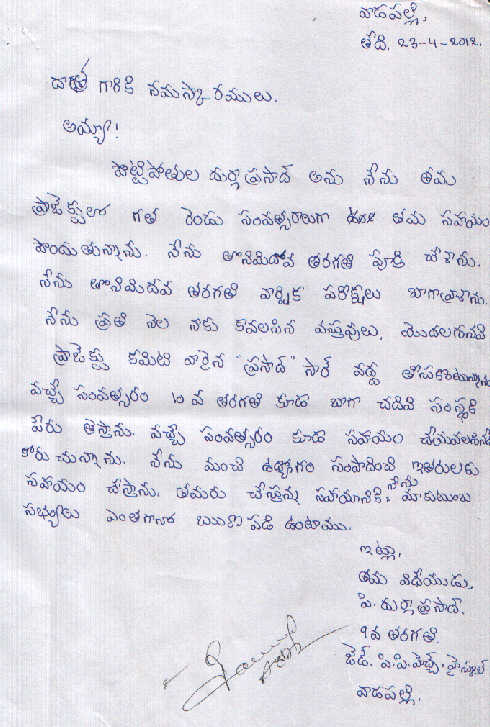 వాడపల్లి,
తేది. 23-4-2012.
దాత గారికి నమస్కారములు.
అయ్యా!
పొట్టిపోతుల దుర్గాప్రసాద్ అను నేను తమ
ప్రాజెక్టులో గత రెండు సంవత్సరాలుగా తమ సహయం
పొందుతున్నాను. నేను తొమిమిదోవ తరగతి పూర్తి చేశాను.
నేను తొనిమిదవ తరగతి వార్షిక పరీక్షలు బాగావ్రాశాను.
నేను ప్రతి నెల నాకు కావలసిన వస్తువులు, మొదలగునవి
ప్రాజెక్టు కమిటి వారైన "ప్రసాద్" సార్ వద్ద తీసుకుంటున్నాను
వచ్చే సంవత్సరం 10 వ తరగతి కూడ బాగా చదివి సంస్థకి
పేరు తెస్తాను. వచ్చే సంవత్సరం కూడ సహయం చేయవలసినదిగా
కోరుచున్నాను. నేను మంచి ఉద్యోగం సంపాదించి ఇతరులకు
సహయం చేస్తాను. తమరు చేస్తున్న సహాయానికి, నేను మా కుటుంబ
సభ్యులు ఎంతగానో బుుణ పడి ఉంటాము.
ఇట్లు,
తమ విధేయుడు,
పి. దుర్గాప్రసాద్.
9వ తరగతి.
జెడ్. పి. పి. హెచ్. హైస్కూల్
వాడపల్లి.